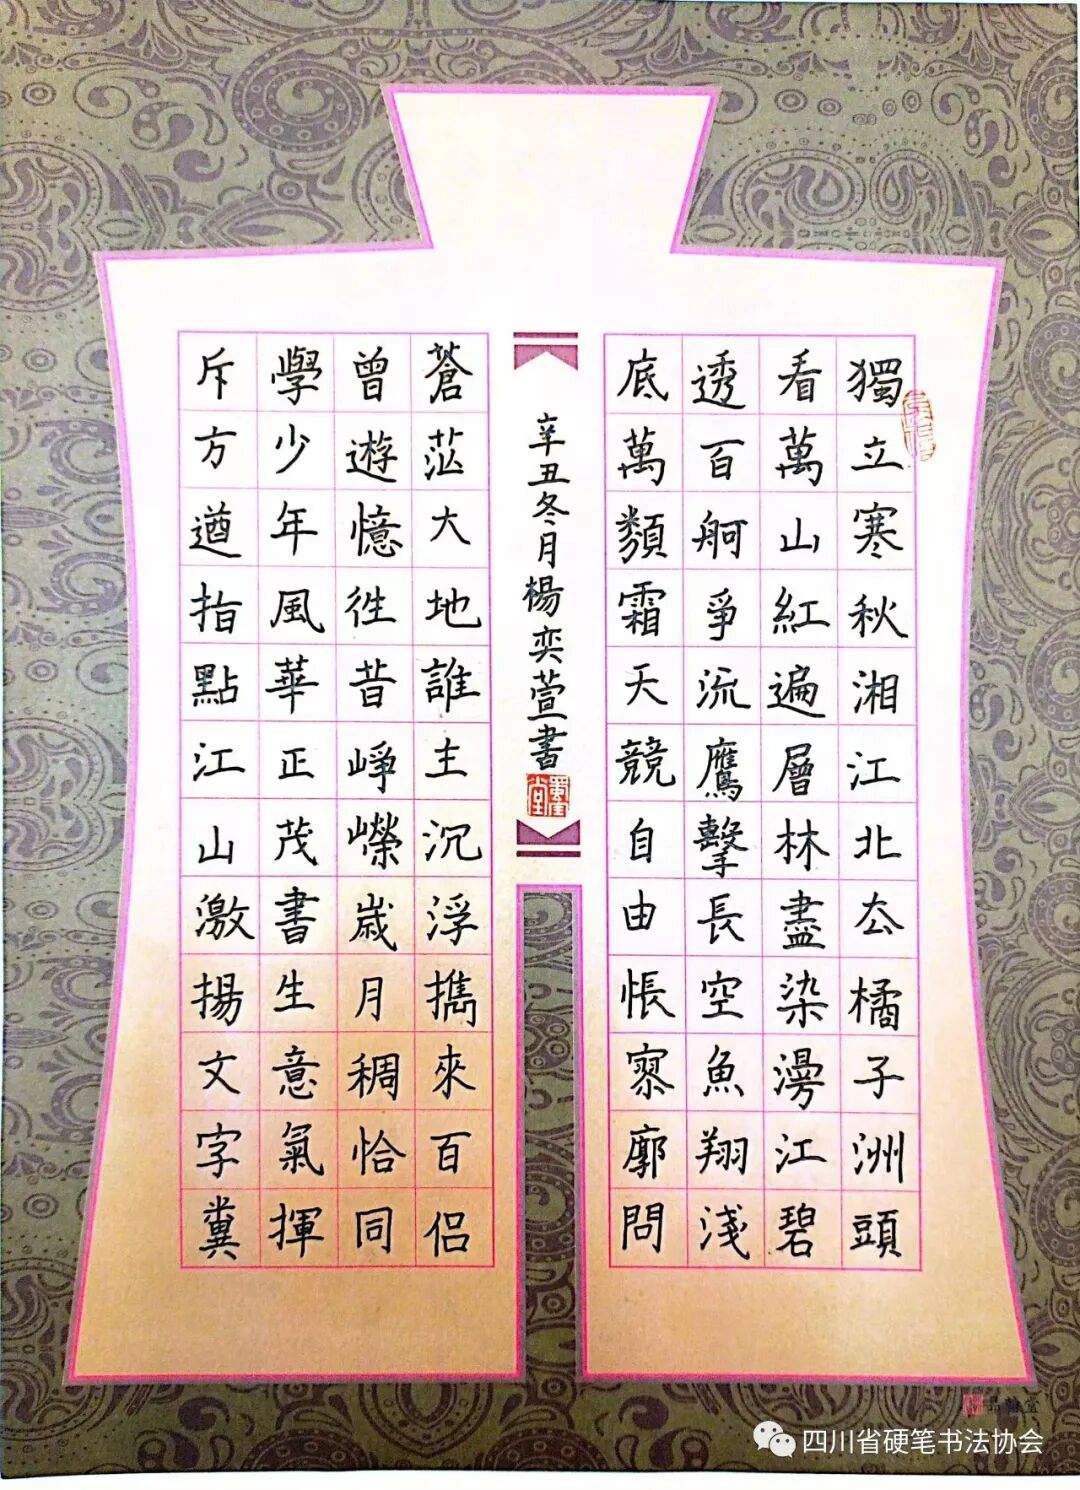 獨立寒秋湘江北去橘子洲頭
看萬山紅遍層林盡染漫江碧
透百舸爭流鷹擊長空魚翔淺
底萬類霜天競自由悵寥廓問
蒼茫大地誰主沉浮攜來百侶
曾遊憶往昔崢嶸歲月稠恰同
學少年風華正茂書生意氣揮
斥方遒指點江山激揚文字糞
辛丑冬月楊奕萱書
四川省硬笔书法协会